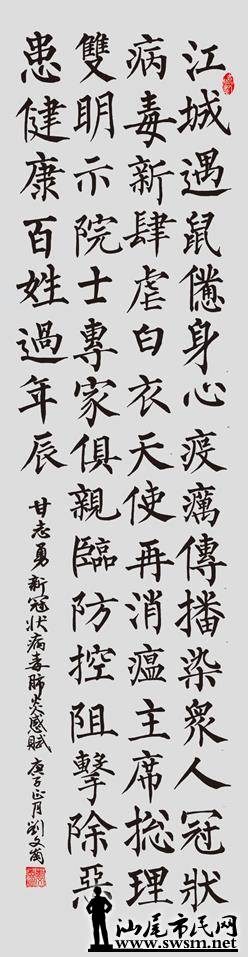 江城遇鼠儘身心疫癘傳播染衆人冠狀
病毒新肆虐白衣天使再消瘟主席總理
雙明示院士專家俱親臨防控阻擊除惡
患健康百姓過年辰
甘志勇新冠状病毒肺炎感赋 庚子正月劉文
汕尾市民网
www.swsm.net